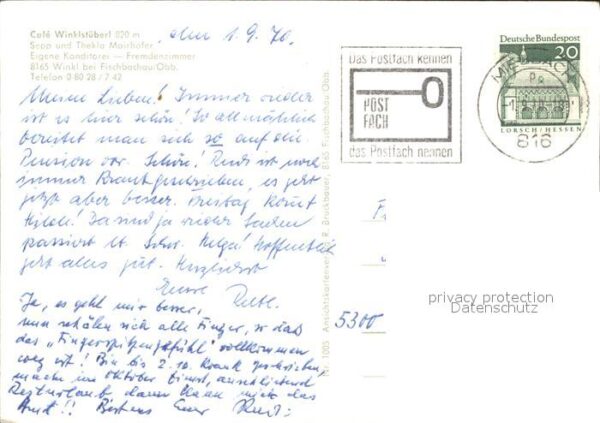 Café Winklstüberl 820 m
Sepp und Thekla Mairhofer
Eigene Konditorei — Fremdenzimmer
8165 Winkl bei Fischbachau/Obb.
Telefon 0 80 28 / 7 42
den 1.9.70.
Meine Lieben! Immer wieder
ist es hier schön! So allmählich
bereitet man sich so auf die
Pension vor. Schön! Rudi ist noch
immer krank geschrieben, es geht
jetzt aber besser. Freitag kommt
Hilde! Da sind ja wieder Sachen
passiert lt. Helga! Hoffentlich
geht alles gut. Herzlichst
Eure
Ja, es geht mir besser,
nun schälen sich alle Finger, so daß
das "Fingerspitzengefühl" vollkommen
weg ist! Bin bis 2.10. krank geschrieben,
mache im Oktober Dienst, anschließend
Resturlaub, dann kann mich das
Amt!! Bestens Euer Rudi
Nr. 1005 Ansichtskartenverlag R. Bruckbauer, 8165 Fischbachau/Obb.
Das Postfach kennen
POST
FACH
das Postfach nennen
Deutsche Bundespost
20
LORSCH/HESSEN
816
5300
privacy protection
Datenschutz